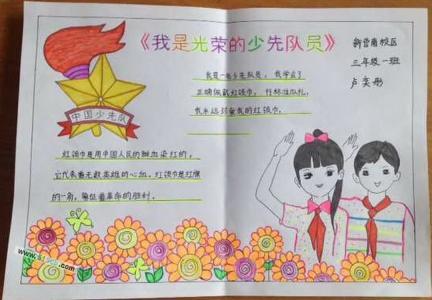 《我是光荣的少先队员》
新营南校区
三年级一班
中国少先队
我是一名少先队员，我学会了
正确佩戴红领巾，行标准队礼，
我永远珍爱我的红领巾。
红领巾是用中国人民的鲜血染红的，
它代表着无数英雄的心血。红领巾是红旗
的一角，象征着革命的胜利。